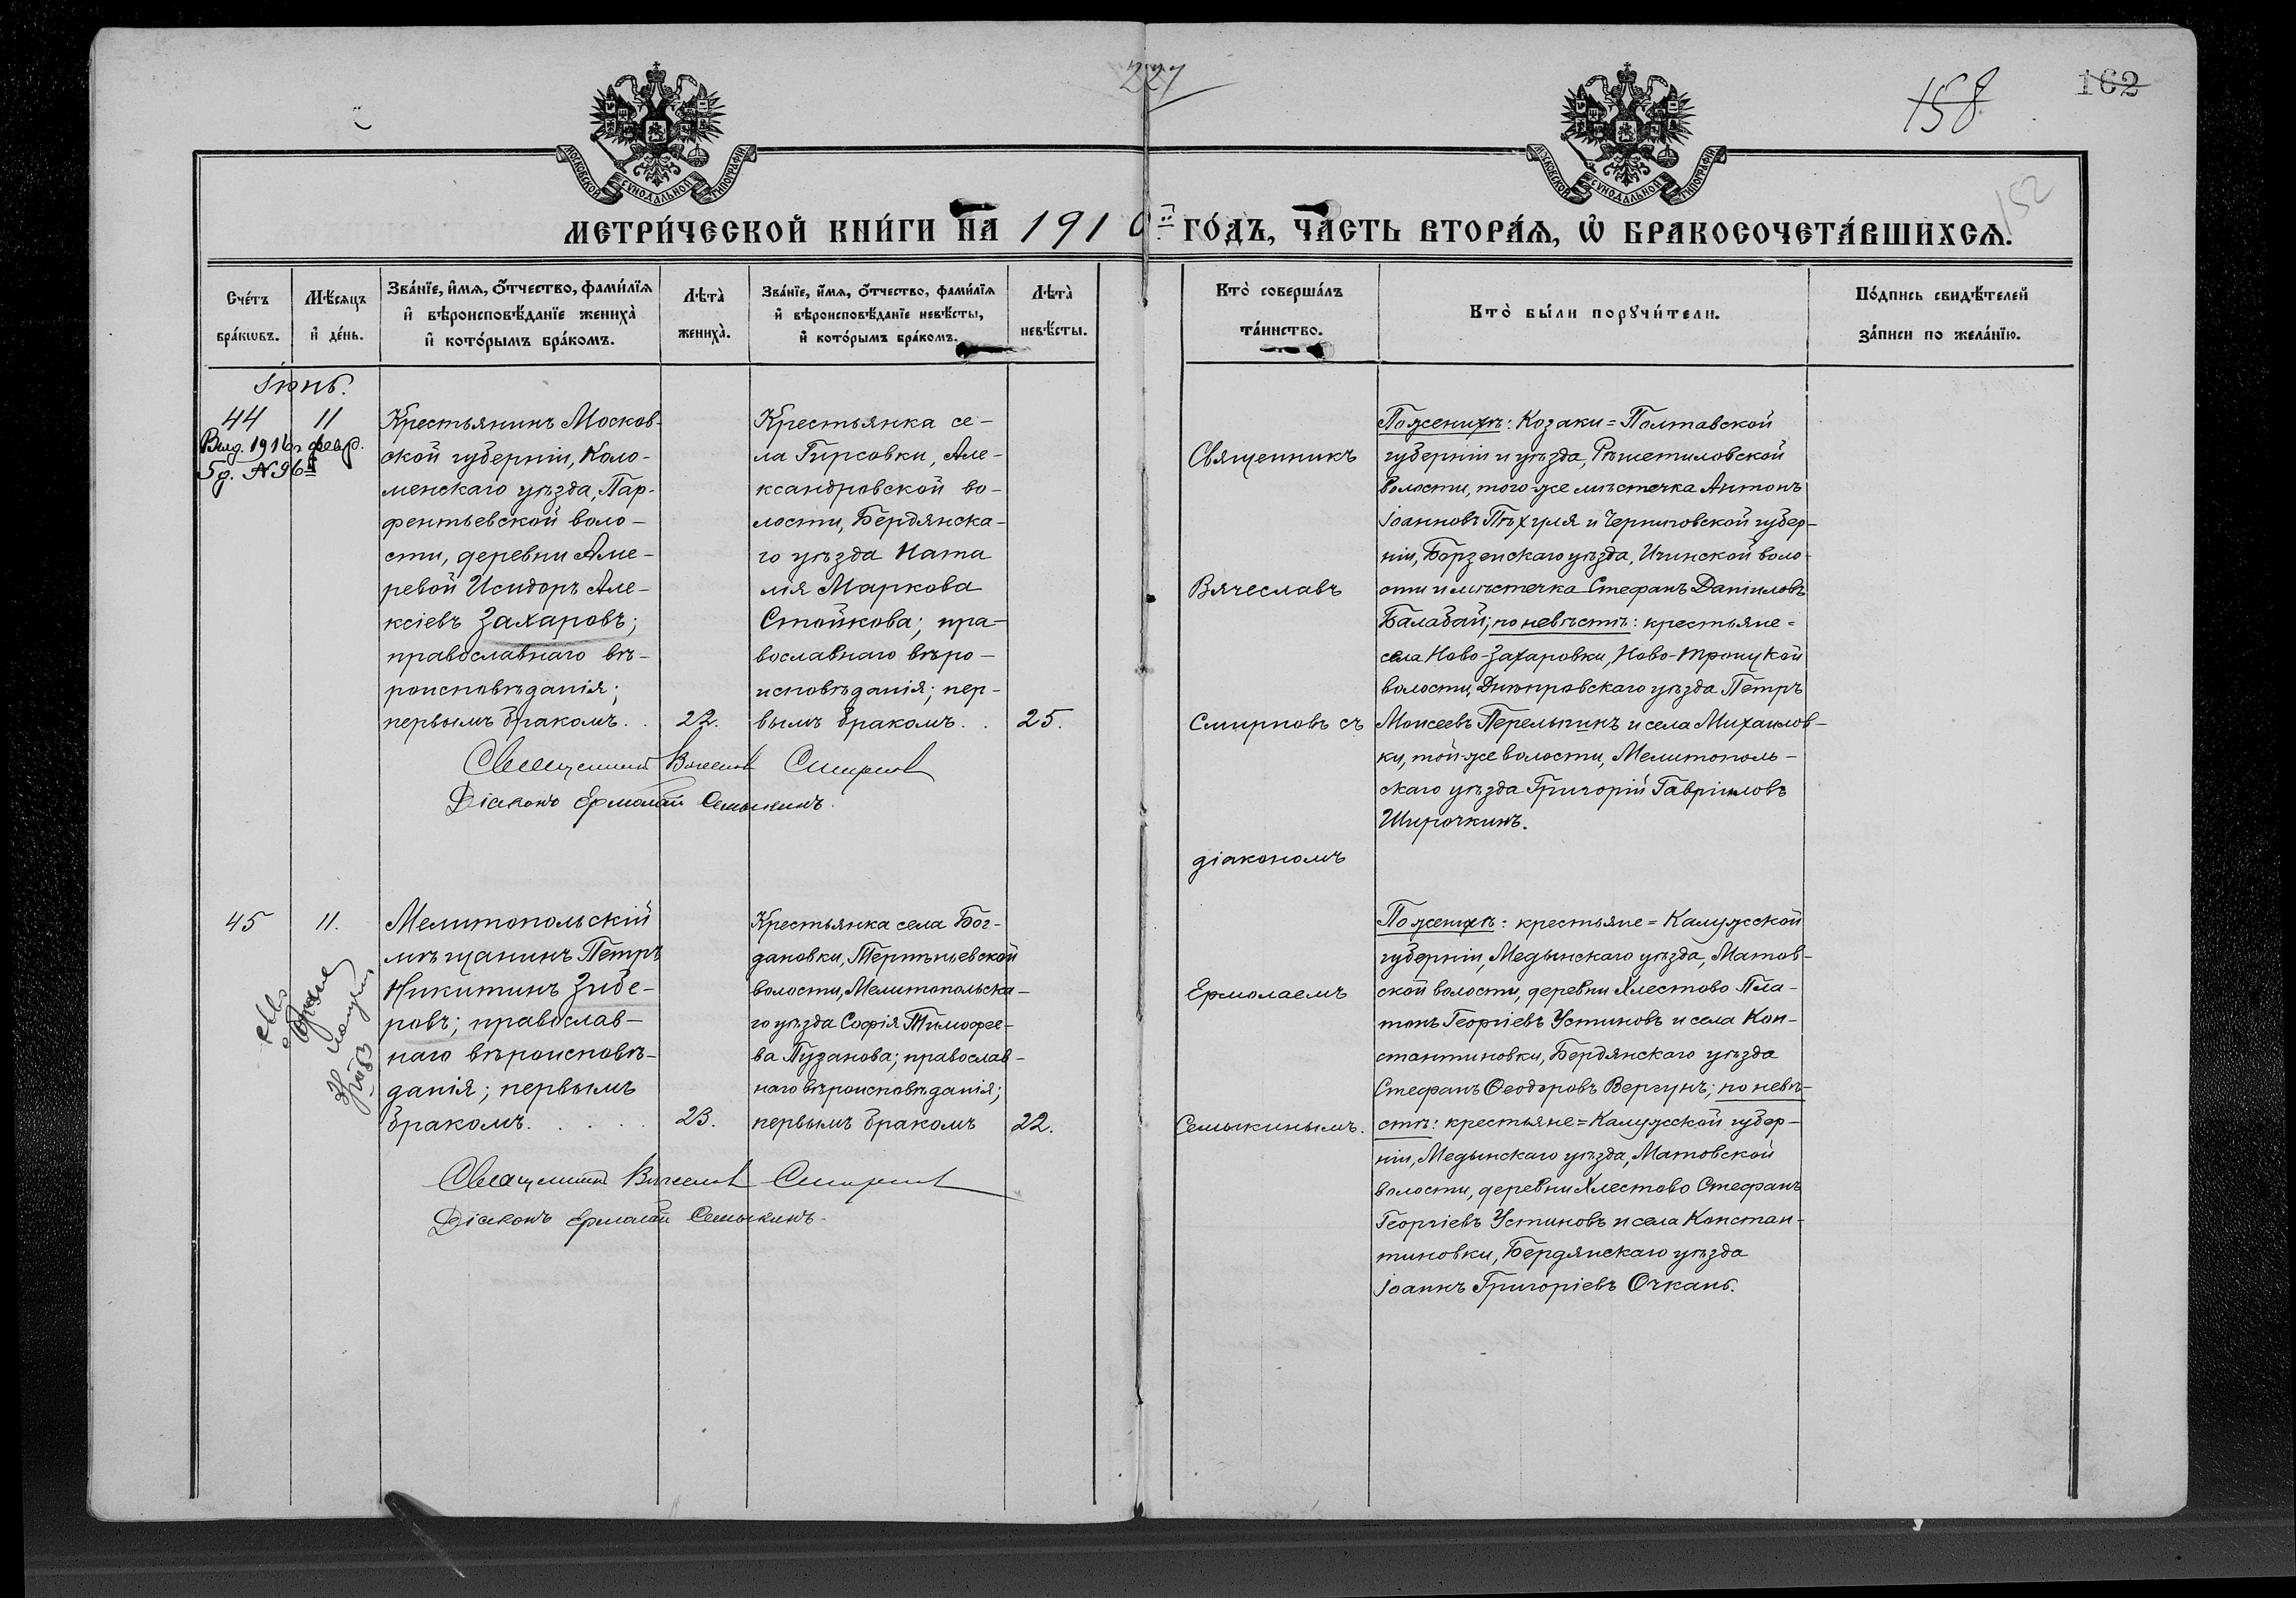 227
158
162
152
МОСКОВСКОЙ СУНОДАЛЬНОЙ ТИПОГРАФІИ
МОСКОВСКОЙ СУНОДАЛЬНОЙ ТИПОГРАФІИ
МЕТРИ́ЧЕСКОЙ КНИ́ГИ НА 1910й ГО́ДЪ, ЧА́СТЬ ВТОРА́Я, Ѡ БРАКОСОЧЕТА́ВШИХСЯ.
Сче́тъ бра́кѡвъ.
Мѣ́сяцъ и де́нь.
Зва́нїе, и́мѧ, ѻ́тчество, фами́лїѧ и вѣроисповѣ́данїе женихà и кото́рымъ бра́комъ.
Лѣтà женихà.
Зва́нїе, и́мѧ, ѻ́тчество, фами́лїѧ и вѣроисповѣ́данїе невѣ́сты, и кото́рымъ бра́комъ.
Лѣтà невѣ́сты.
Кто̀ соверша́лъ та́инство.
Кто̀ бы́ли порꙋчи́тели.
По́дпись свидѣ́телей за́писи по жела́нїю.
Іюнь.
44
11
Выд. 1916 г. февр.
5 д. № 96
Крестьянинъ Москов-
ской губерніи, Коло-
менскаго уѣзда, Пар-
фентьевской воло-
сти, деревни Аме-
ревой Исидоръ Але-
ксіевъ Захаровъ;
православнаго вѣ-
роисповѣданія;
первымъ бракомъ. .
22.
Крестьянка се-
ла Гирсовки, Але-
ксандровской во-
лости, Бердянска-
го уѣзда Ната
лія Маркова
Стойкова; пра-
вославнаго вѣро-
исповѣданія; пер-
вымъ бракомъ. .
25.
Священникъ Вячеславъ Смирновъ
Діаконъ Ермолай Семыкинъ.
Священникъ
Вячеславъ
Смирновъ съ
діакономъ
Ермолаемъ
Семыкинымъ.
По женихѣ: Козаки = Полтавской
губерніи и уѣзда, Рѣшетиловской
волости, того-же мѣстечка Антонъ
Іоанновъ Пѣхуля и Черниговской губер-
ніи, Борзенскаго уѣзда, Ичинской воло-
сти и мѣстечка Стефанъ Даніиловъ
Балабай; по невѣстѣ: крестьяне =
села Ново-Захаровки, Ново-Троицкой
волости, Днѣпровскаго уѣзда Петръ
Моисеевъ Перелыгинъ и села Михаилов-
ки, той же волости, Мелитополь-
скаго уѣзда Григорій Гавріиловъ
Широчкинъ.
45
11.
Мелитопольскій
мѣщанинъ Петръ
Никитинъ Зибе-
ровъ; православ-
наго вѣроисповѣ-
данія; первымъ
бракомъ. . . . .
23.
Крестьянка села Бог-
дановки, Терпѣньевской
волости, Мелитопольска-
го уѣзда Софія Тимофее-
ва Пузанова; православ-
наго вѣроисповѣданія;
первымъ бракомъ
22.
Священникъ Вячеславъ Смирновъ
Діаконъ Ермолай Семыкинъ.
По женихѣ: крестьяне = Калужской
губерніи, Медынскаго уѣзда, Матов-
ской волости, деревни Хлестово Пла-
тонъ Георгіевъ Устиновъ и села Кон-
стантиновки, Бердянскаго уѣзда
Стефанъ Ѳеодоровъ Вергунъ; по невѣ-
стѣ: крестьяне = Калужской губер-
ніи, Медынскаго уѣзда, Матовской
волости, деревни Хлестово Стефанъ
Георгіевъ Устиновъ и села Констан-
тиновки, Бердянскаго уѣзда
Іоаннъ Григоріевъ Очкань.